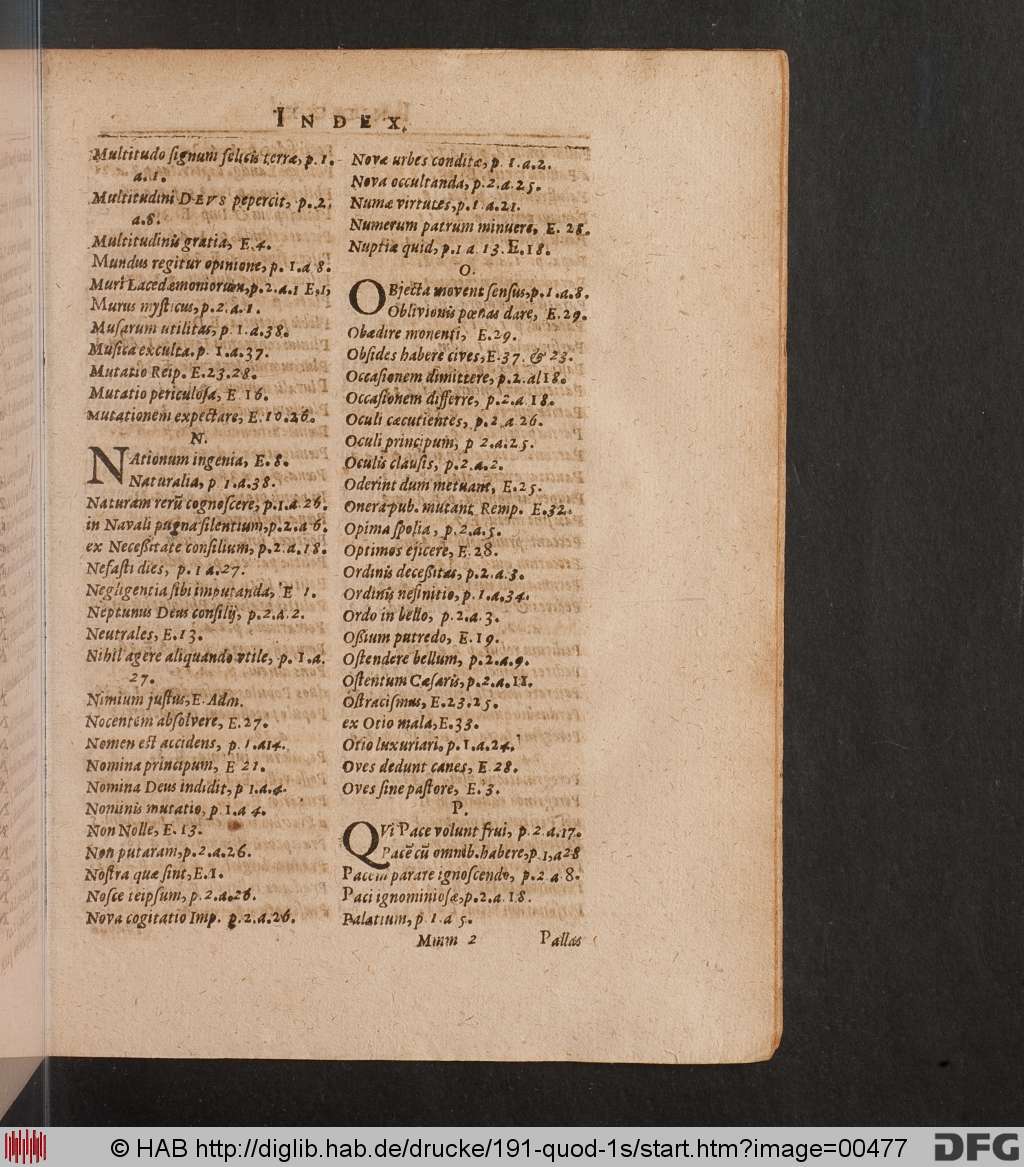 INDEX.
Multitudo signum felicis terræ, p. 1.
a. 1.
Multitudini DEVS pepercit, p. 2.
a. 8.
Multitudinis gratia, E. 4.
Mundus regitur opinione, p. 1. a 8.
Muri Lacedæmoniorum, p. 2. a. 1 E, 1,
Murus mysticus, p. 2. a. 1.
Musarum utilitas, p. 1. a. 38.
Musica exculta. p. 1. a. 37.
Mutatio Reip. E. 23. 28.
Mutatio periculosa, E. 16.
Mutationem expectare, E. 10. 26.
N.
NAtionum ingenia, E. 8.
Naturalia, p 1. a. 38.
Naturam rerū cognoscere, p. 1. a 26.
in Navali pugna silentium, p. 2. a 6.
ex Necessitate consilium, p. 2. a. 18.
Nefasti dies, p. 1 a. 27.
Negligentia sibi imputanda, E 1.
Neptunus Deus consilij, p. 2. a. 2.
Neutrales, E. 13.
Nihil agere aliquando vtile, p. 1. a.
27.
Nimium justus, E. Adm.
Nocentem absolvere, E. 27.
Nomen est accidens, p. 1. a14.
Nomina principum, E 21.
Nomina Deus indidit, p 1. a. 4.
Nominis mutatio, p. 1. a 4.
Non Nolle, E. 13.
Non putaram, p. 2. a. 26.
Nostra quæ sint, E. 1.
Nosce teipsum, p. 2. a. 26.
Nova cogitatio Imp. p. 2. a. 26.
Novæ urbes conditæ, p. 1. a. 2.
Nova occultanda, p. 2. a. 25.
Numæ virtutes, p. 1. a. 21.
Numerum patrum minuere, E. 28.
Nuptiæ quid, p. 1 a. 13. E. 18.
O.
OBjecta movent sensus, p. 1. a. 8.
Oblivionis pœnas dare, E. 29.
Obædire monenti, E. 29.
Obsides habere cives, E. 37. & 23.
Occasionem dimittere, p. 2. al 18.
Occasionem differre, p. 2. a. 18.
Oculi cæcutientes, p. 2. a 26.
Oculi principum, p 2. a. 25.
Oculis clausis, p. 2. a. 2.
Oderint dum metuant, E. 25.
Onera pub. mutant Remp. E. 32.
Opima spolia, p. 2. a. 5.
Optimos ejicere, E. 28.
Ordinis decessitas, p. 2. a. 3.
Ordinis nesinitio, p. 1. a. 34.
Ordo in bello, p. 2. a. 3.
Ossium putredo, E. 19.
Ostendere bellum, p. 2. a. 9.
Ostentum Cæsaris, p. 2. a. 11.
Ostracismus, E. 23. 25.
ex Otio mala, E. 33.
Otio luxuriari, p. 1. a. 24.
Oves dedunt canes, E. 28.
Oves sine pastore, E. 3.
P.
QVi Pace volunt frui, p. 2. a. 17.
Pacē cū omnib. habere, p. 1, a 28
Pacem parare ignoscendo, p. 2 a 8.
Paci ignominiosæ, p. 2. a. 18.
Palatium, p 1. a 5.
Mmm 2 Pallas
© HAB http://diglib.hab.de/drucke/191-quod-1s/start.htm?image=00477
DFG